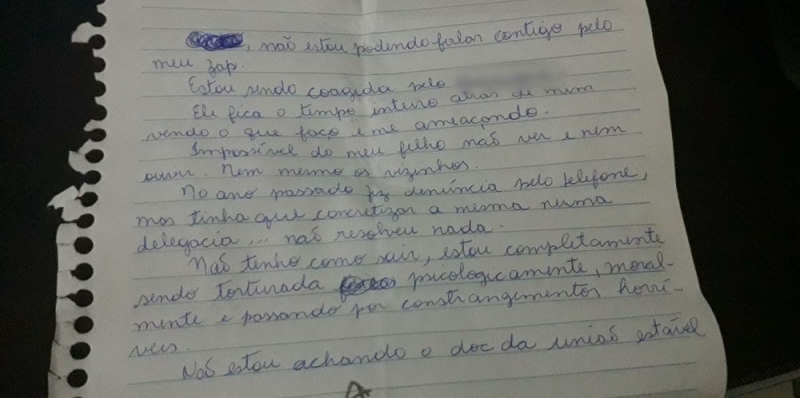 , não estou podendo falar contigo pelo
meu zap.
Estou sendo coagida pelo
Ele fica o tempo inteiro atrás de mim
vendo o que faço e me ameaçando.
Impossível do meu filho não ver e nem
ouvir. Nem mesmo os vizinhos.
No ano passado fiz denúncia pelo telefone,
mas tinha que concretizar a mesma numa
delegacia... não resolveu nada.
Não tenho como sair, estou completamente
sendo torturada psicologicamente, moral-
mente e passando por constrangimentos horrí-
veis.
Não estou achando o doc da união estável